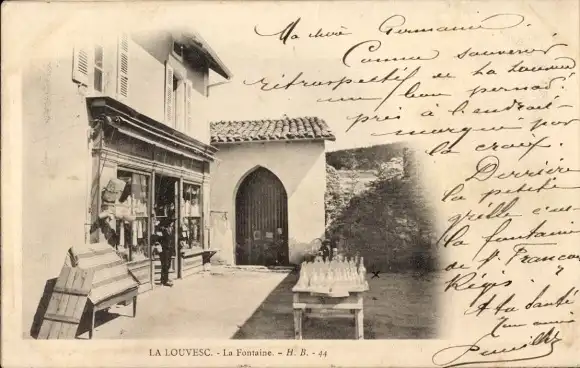 Ma chère Germaine
Comme souvenir
rétrospectif de La Louvesc
un bon pernod
près à l'endroit
marqué par
la croix.
Derrière
la petite
grille c'est
la fontaine
de St François
Régis.
A ta santé
Ton ami
x
LA LOUVESC. - La Fontaine. - H. B. - 44